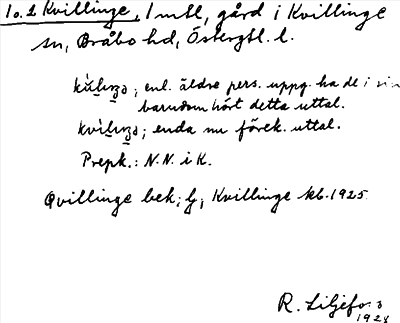 1 o. 2 Kvillinge, 1 mtl, gård i Kvillinge
sn, Bråbo hd, Östergtl. l.
enl. äldre pers. uppg. ha de i sin
barndom hört detta uttal.
enda nu förek. uttal.
Prepk.: N.N. i K.
Qvillinge bek; G; Kvillinge kb. 1925
R. Liljefo